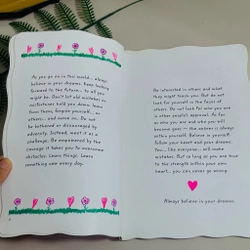 As you go on in this world... always
believe in your dreams. Keep looking
forward to the future... to all you
might be. Don't let old mistakes or
misfortunes hold you down: learn
from them, forgive yourself... or
others... and move on. Do not
be bothered or discouraged by
adversity. Instead, meet it as a
challenge. Be empowered by the
courage it takes you to overcome
obstacles. Learn things. Learn
something new every day.
Be interested in others and what
they might teach you. But do not
look for yourself in the faces of
others. Do not look for who you are
in other people's approval. As far
as who you are and who you will
become goes — the answer is always
within yourself. Believe in yourself.
Follow your heart and your dreams.
You... like everyone... will make
mistakes. But so long as you are true
to the strength within your own
heart... you can never go wrong.
Always believe in your dreams.